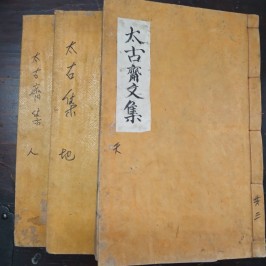 太古齋文集
天
太古集
地
太古齋集
人